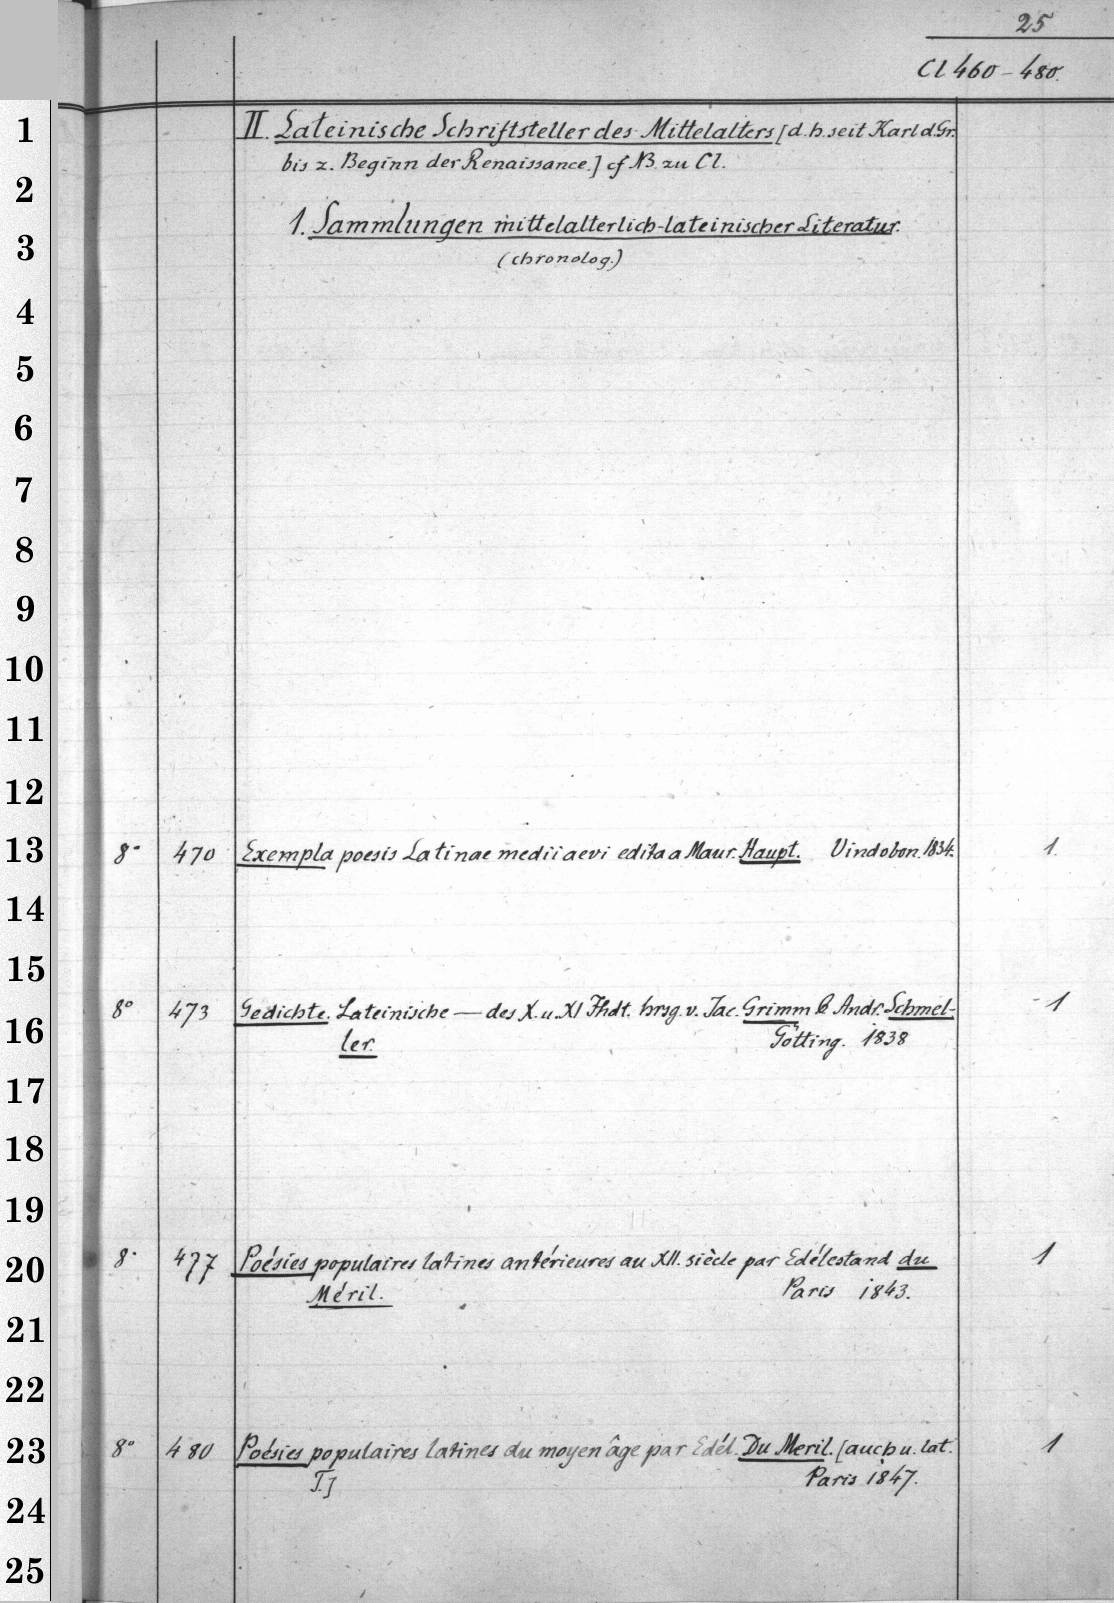 25
Cl 460-480.
1 II. Lateinische Schriftsteller des Mittelalters [d.h. seit Karl d. Gr.
bis z. Beginn der Renaissance.] cf NB. zu Cl.
2
1. Sammlungen mittelalterlich-lateinischer Literatur.
3
(chronolog.)
4
5
6
7
8
9
10
11
12
13 8° 470 Exempla poesis Latinae medii aevi edita a Maur. Haupt. Vindobon. 1834. 1.
14
15
8° 473 Gedichte. Lateinische — des X. u. XI Jhdt. hrsg. v. Jac. Grimm & Andr. Schmel- 1
16
ler. Götting. 1838
17
18
19
20 8° 477 Poésies populaires latines antérieures au XII. siècle par Edélestand du 1
Méril. Paris 1843.
21
22
23 8° 480 Poésies populaires latines du moyen âge par Edél. Du Meril. [auch u. lat. 1
T.] Paris 1847.
24
25